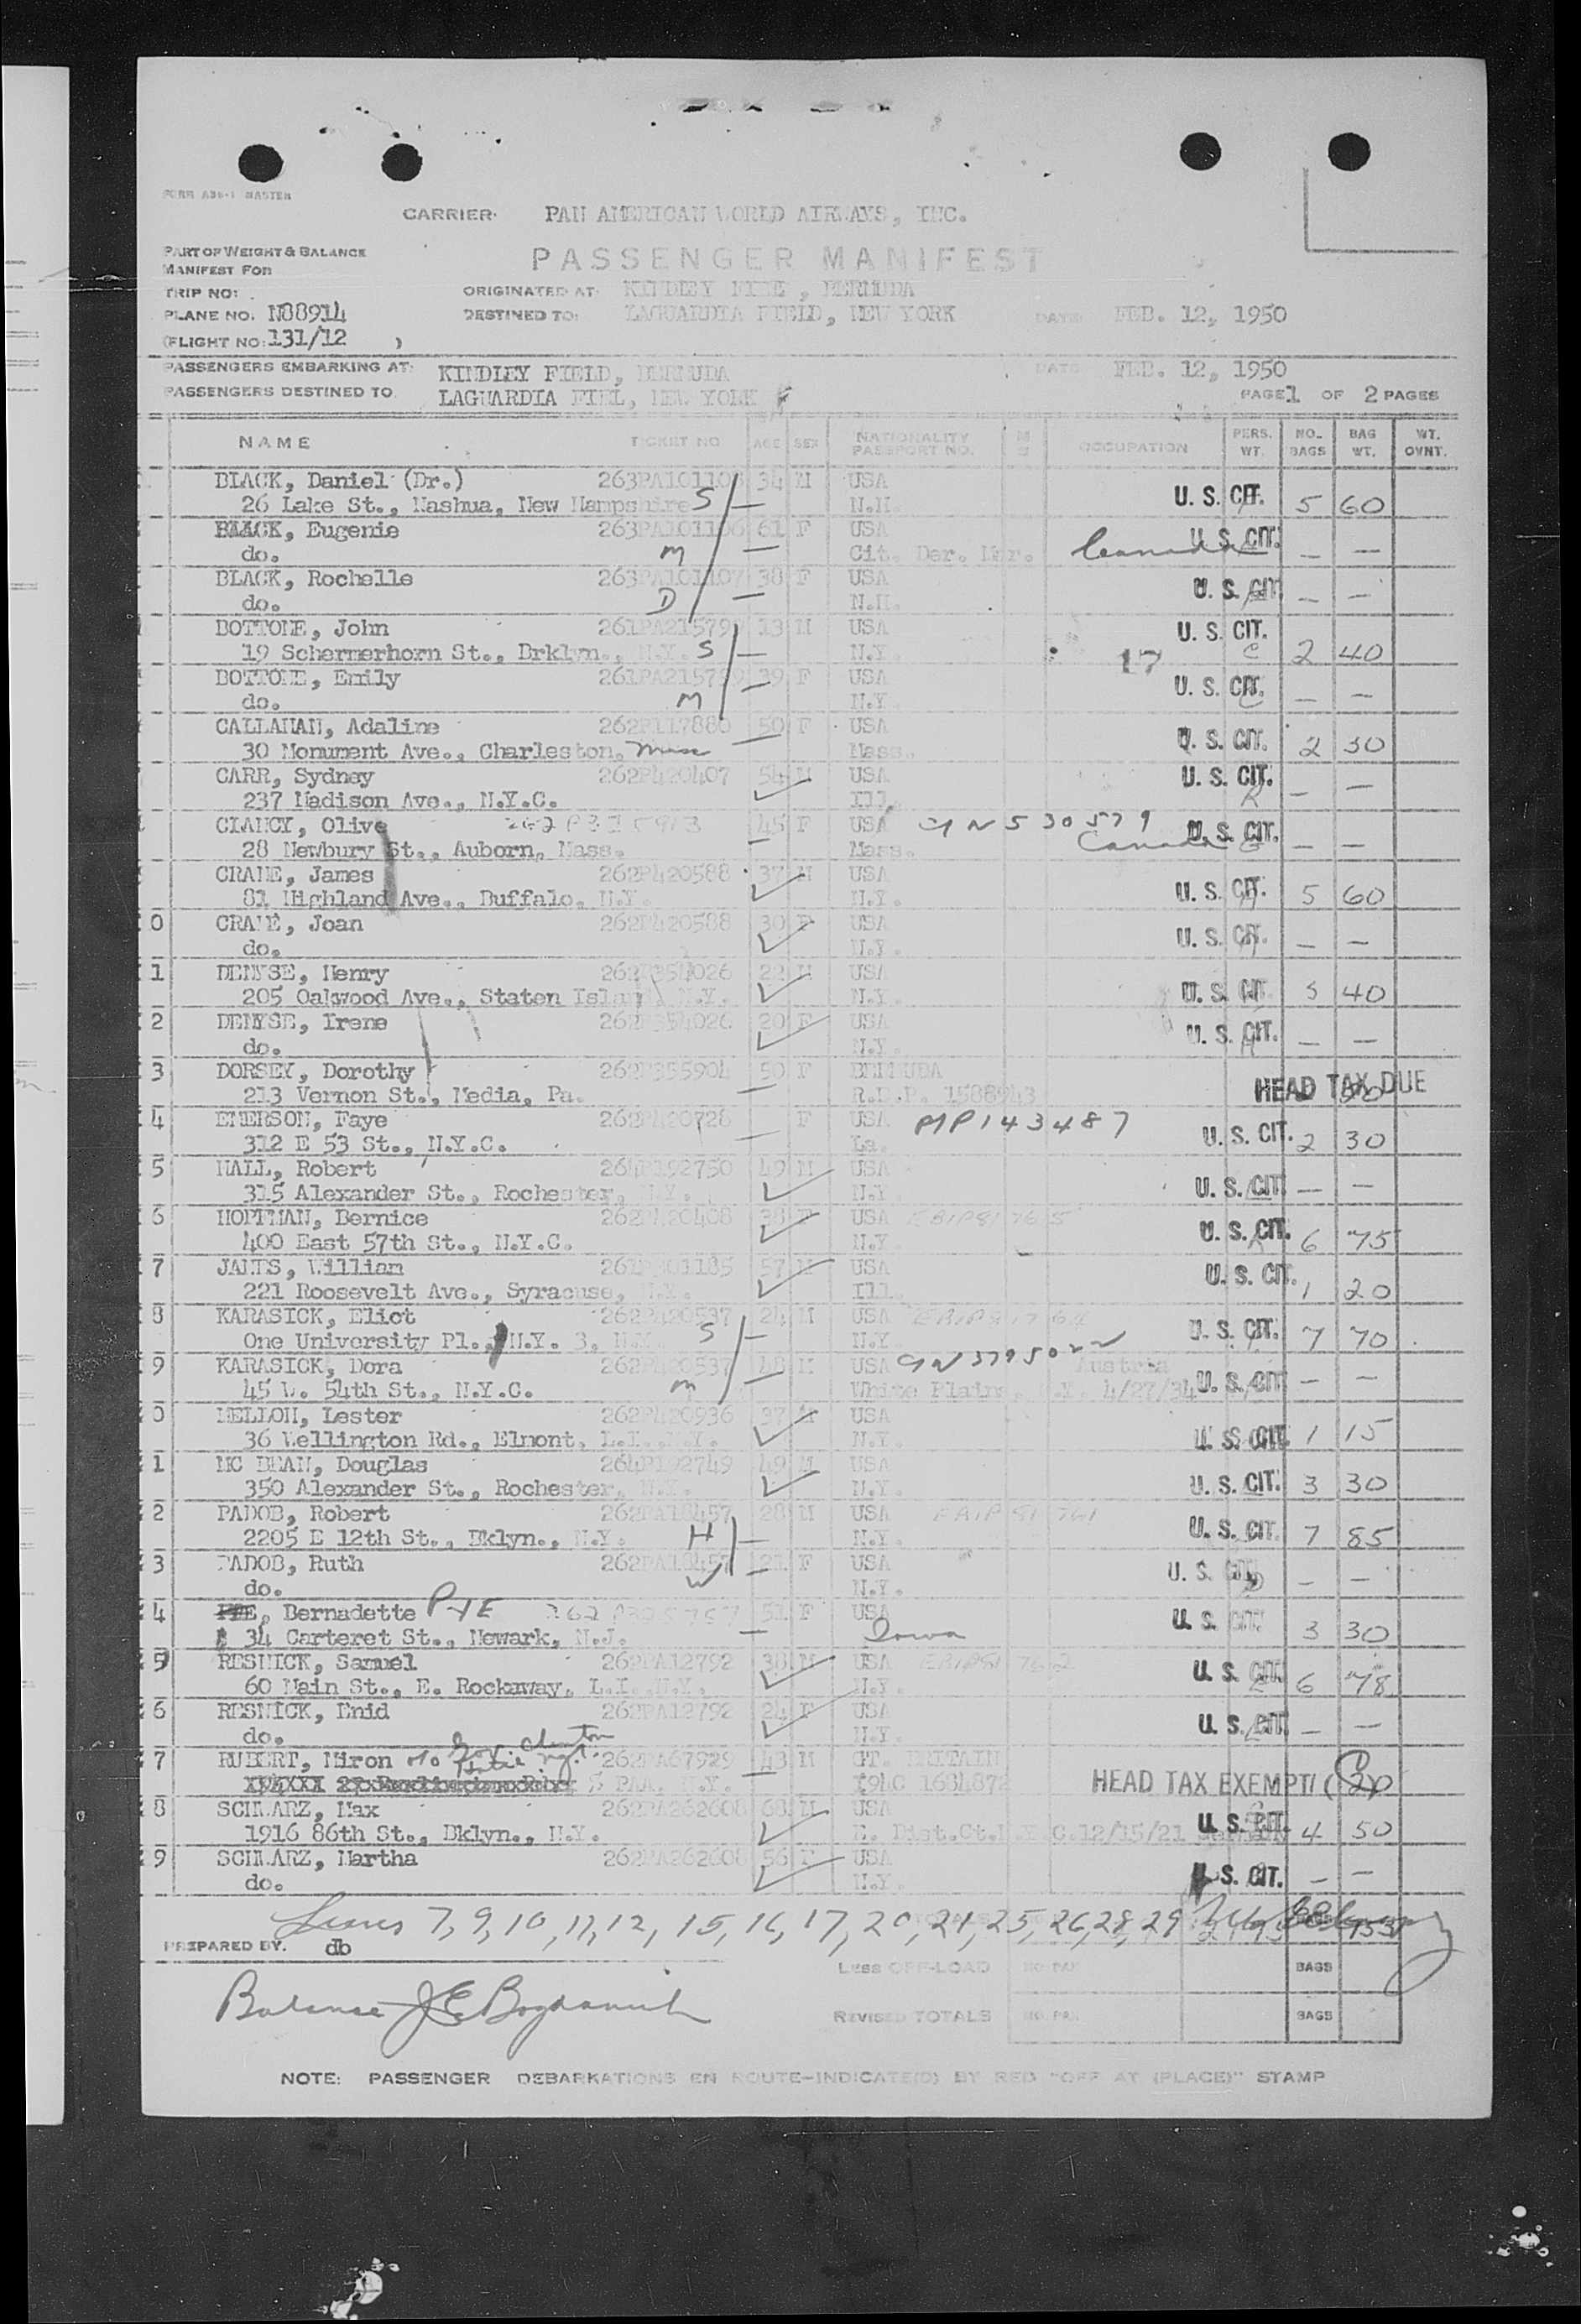 FORM A36-1 MASTER
CARRIER: PAN AMERICAN WORLD AIRWAYS, INC.
PART OF WEIGHT & BALANCE
MANIFEST FOR
PASSENGER MANIFEST
TRIP NO:
ORIGINATED AT: KINDLEY FIEL, BERMUDA
PLANE NO. N88914
DESTINED TO: LAGUARDIA FIELD, NEW YORK DATE FEB. 12, 1950
(FLIGHT NO: 131/12 )
PASSENGERS EMBARKING AT: KINDLEY FIELD, BERMUDA DATE FEB. 12, 1950
PASSENGERS DESTINED TO LAGUARDIA FIEL, NEW YORK PAGE 1 OF 2 PAGES
NAME TICKET NO AGE SEX NATIONALITY PASSPORT NO. OCCUPATION PERS. WT. NO. BAGS BAG WT. WT. OVNT.
BLACK, Daniel (Dr.) 263PA101106 34 M USA
26 Lake St., Nashua, New Hampshire S — N.H. U. S. CIT. 5 60
BLACK, Eugenie 263PA101106 61 F USA
do. M — Cit. Der. Mar. Canada U. S. CIT. — —
BLACK, Rochelle 263PA101107 38 F USA
do. D — N.H. U. S. CIT — —
BOTTONE, John 261PA215799 13 M USA
19 Schermerhorn St., Brklyn., N.Y. S — N.Y. 17 U. S. CIT. 2 40
BOTTONE, Emily 261PA215799 39 F USA
do. M — N.Y. U. S. CIT. — —
CALLAHAN, Adaline 262P117880 50 F USA
30 Monument Ave., Charleston, Mass — Mass. U. S. CIT. 2 30
CARR, Sydney 262P420407 54 M USA
237 Madison Ave., N.Y.C. Ill. U. S. CIT. — —
CLANCY, Olive 45 F USA GN 530579
28 Newbury St., Auborn, Mass. — Mass. Canada U. S. CIT. — —
CRANE, James 262P420588 37 M USA
81 Highland Ave., Buffalo, N.Y. N.Y. U. S. CIT. 5 60
0 CRANE, Joan 262P420588 30 F USA
do. N.Y. U. S. CIT. — —
1 DENYSE, Henry 262P354026 22 M USA
205 Oakwood Ave., Staten Island N.Y. N.Y. U. S. CIT 5 40
2 DENYSE, Irene 262P354026 20 F USA
do. N.Y. U. S. CIT. — —
3 DORSEY, Dorothy 262P355904 50 F BERMUDA
213 Vernon St., Media, Pa. — R.E.P. 1588943 HEAD TAX DUE
4 EMERSON, Faye 262P420728 F USA MP143487
312 E 53 St., N.Y.C. — La. U. S. CIT. 2 30
5 HALL, Robert 264P192750 49 M USA
315 Alexander St., Rochester, N.Y. N.Y. U. S. CIT — —
6 HOFFMAN, Bernice 262P420408 38 F USA
400 East 57th St., N.Y.C. N.Y. U. S. CIT. 6 75
7 JANTS, William 57 M USA
221 Roosevelt Ave., Syracuse, N.Y. Ill. U. S. CIT. 1 20
8 KARASICK, Eliot 262P420537 24 M USA
One University Pl., N.Y. 3, N.Y. S — N.Y. U. S. CIT. 7 70
9 KARASICK, Dora 262P420537 48 M USA Austria
45 W. 54th St., N.Y.C. M — White Plains, N.Y. 4/27/34 U. S. CIT — —
0 MELLON, Lester 262P420936 37 M USA
36 Wellington Rd., Elmont, L.I. N.Y. N.Y. U. S. CIT 1 15
1 MC BEAN, Douglas 264P192749 49 M USA
350 Alexander St., Rochester, N.Y. N.Y. U. S. CIT. 3 30
2 PADOB, Robert 262PA18457 28 M USA
2205 E 12th St., Bklyn., N.Y. H — N.Y. U. S. CIT. 7 85
3 PADOB, Ruth 262PA18457 21 F USA
do. W N.Y. U. S. CIT. — —
4 Bernadette PYE 51 F USA
34 Carteret St., Newark, N.J. — Iowa U. S. CIT. 3 30
5 RESNICK, Samuel 262PA12792 38 M USA
60 Main St., E. Rockaway, L.I. N.Y. N.Y. U. S. CIT. 6 78
6 RESNICK, Enid 262PA12792 24 F USA
do. N.Y. U. S. CIT — —
7 RUBERT, Miron Clinton 262PA67929 43 M GT. BRITAIN
PAA. N.Y. 194C 1634872 HEAD TAX EXEMPT
8 SCHWARZ, Max 262PA262608 68 M USA
1916 86th St., Bklyn., N.Y. E. Dist.Ct. 12/15/21 U. S. CIT. 4 50
9 SCHWARZ, Martha 262PA262608 56 F USA
do. N.Y. U. S. CIT. — —
Lines 7, 9, 10, 11, 12, 15, 16, 17, 20, 21, 25, 26, 28, 29
PREPARED BY. db
LESS OFF-LOAD NO. PAX BAGS
Balance
REVISED TOTALS NO. PAX BAGS
NOTE: PASSENGER DEBARKATIONS EN ROUTE-INDICATE(D) BY RED "OFF AT (PLACE)" STAMP